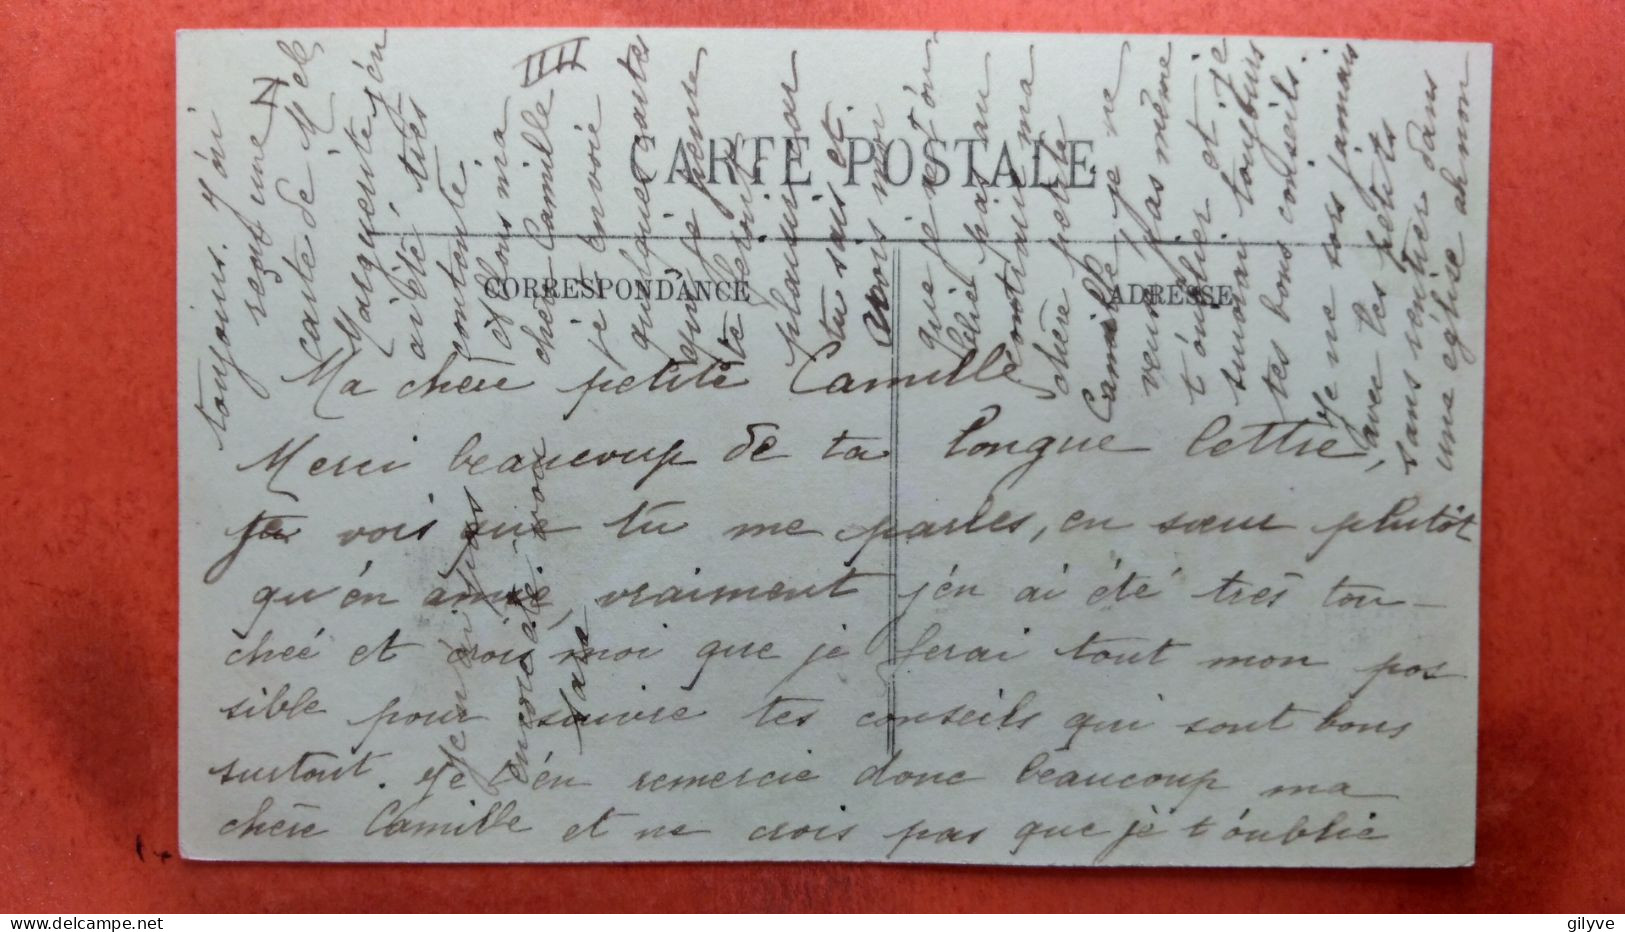 CARTE POSTALE
CORRESPONDANCE
ADRESSE
Ma chère petite Camille
Merci beaucoup de ta longue lettre,
je vois que tu me parles, en sœur plutôt
qu'én amie, vraiment j'én ai été très tou-
chée et crois moi que je ferai tout mon pos
sible pour suivre tes conseils qui sont bons
surtout. Je t'én remercie donc beaucoup ma
chère Camille et ne crois pas que je t'oublie
toujours. J'ai
reçut une
carte de Mel
Marguerite j'én
ai été très
contente
Allons ma
chère Camille
je t'envoie
quelques cartes
que je pense
te feront
plaisir
tu sais et
crois moi
que je n'ai
pas au
contraire ma
chère petite
Camille je ne
veux pas même
t'oublier et je
suivrai toujours
tes bons conseils.
Je ne sors jamais
avec les petits
sans rentrer dans
une église ah non
Je n'ai pas
encore été voir
Sara
III
gilyve